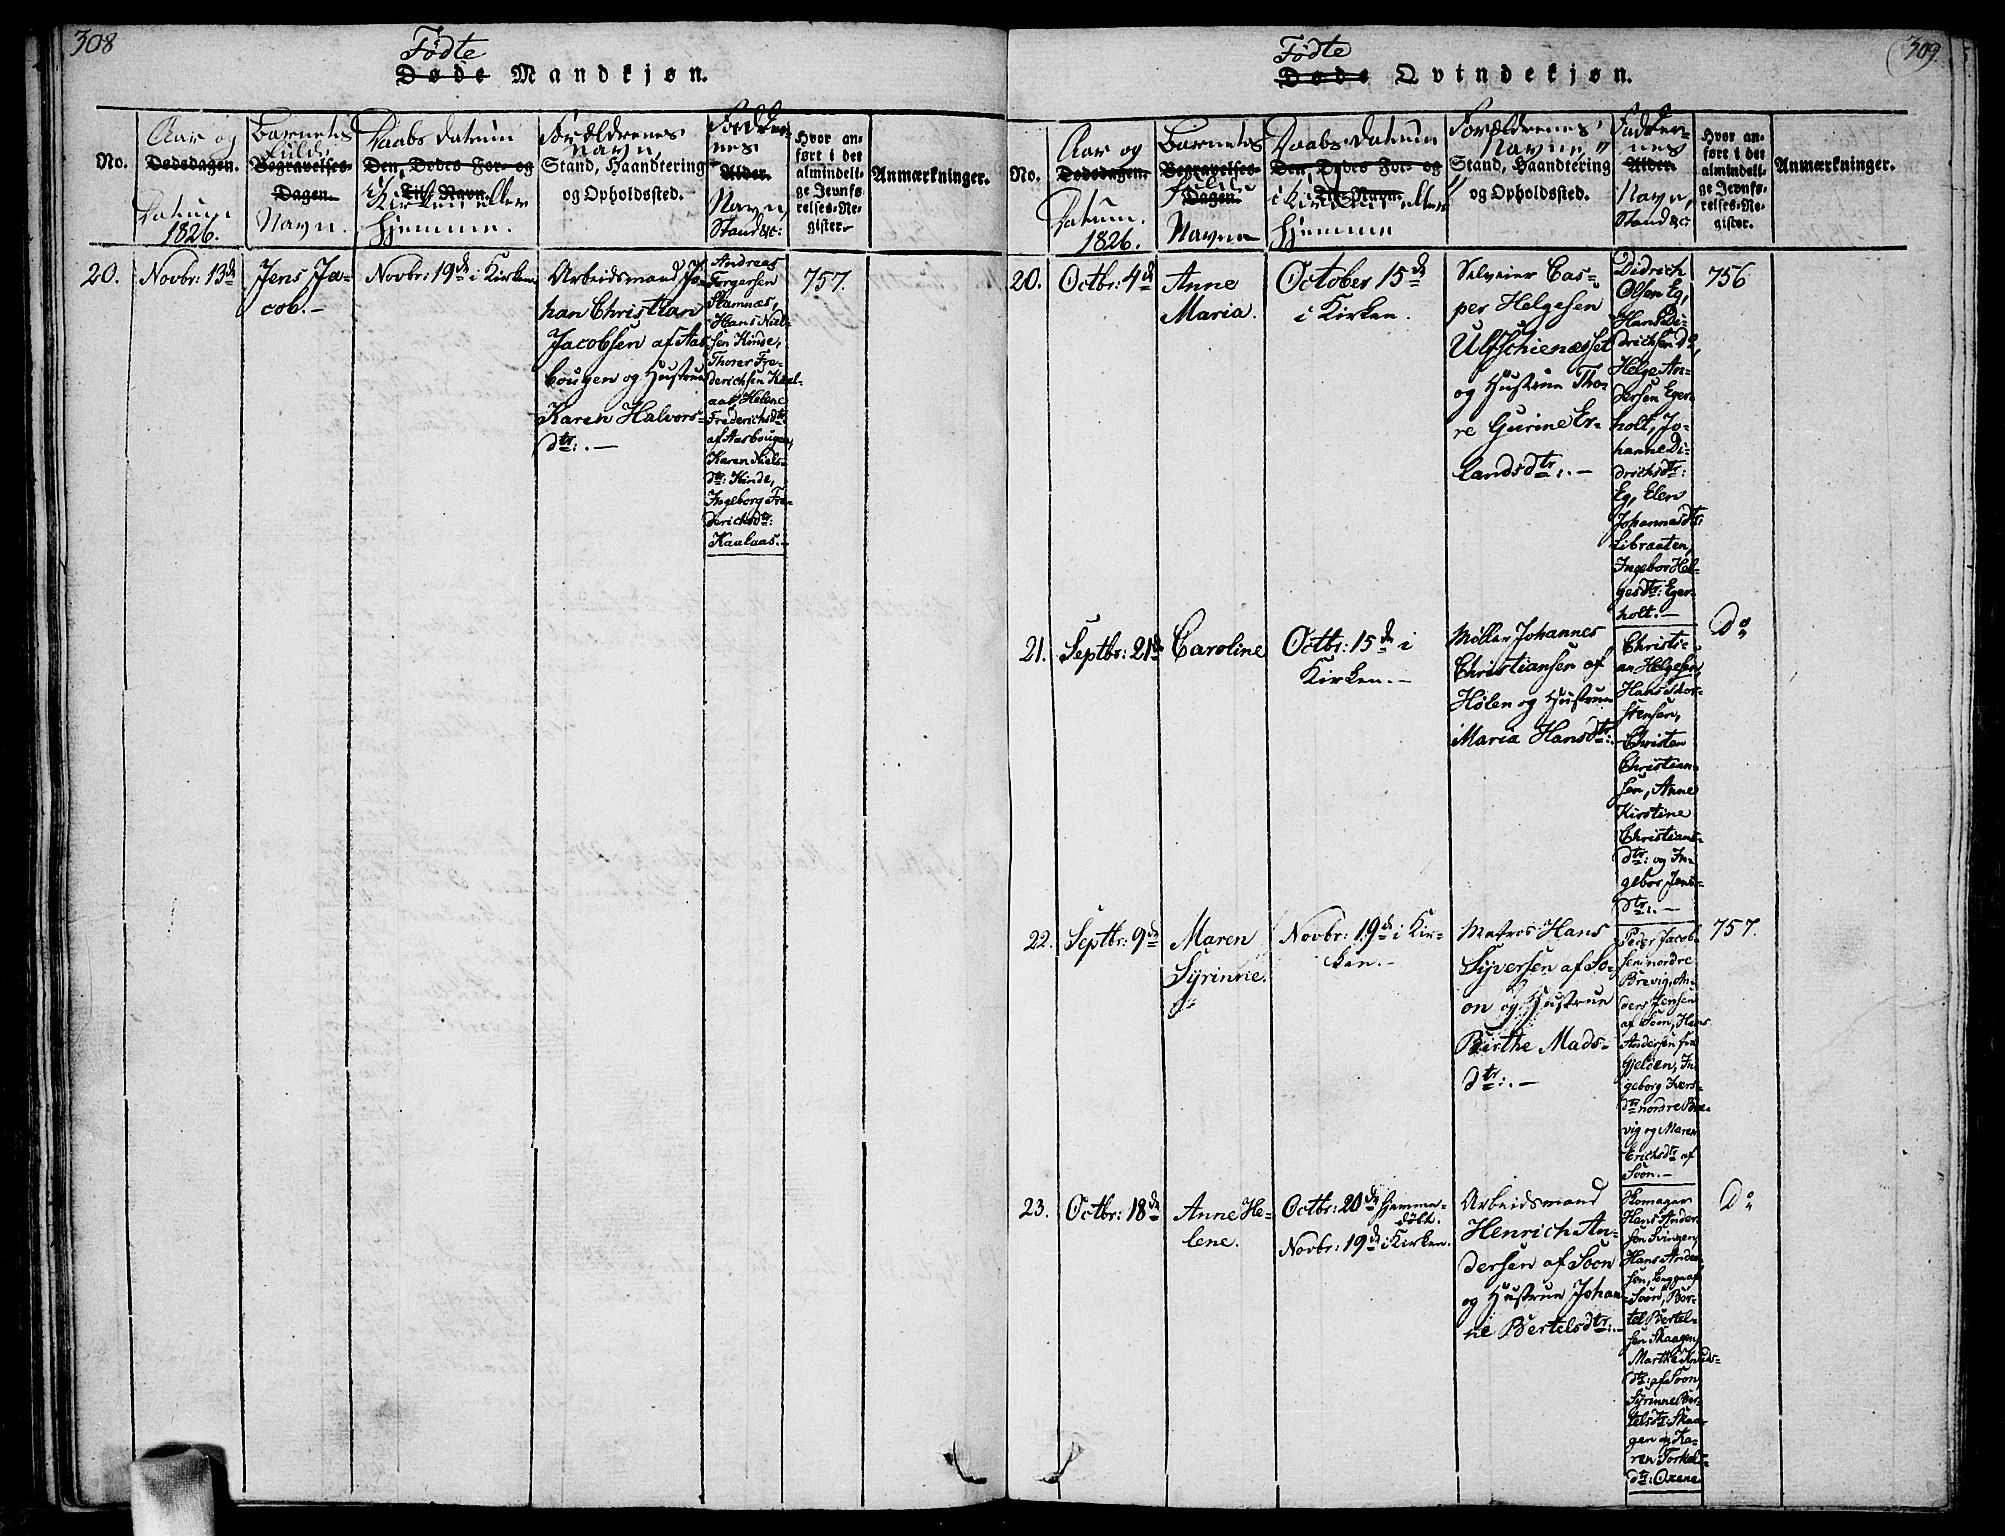 308
Fødte
Døde Mandkjøn.
No.
Aar og
Dødsdagen.
Datum
1826.
Barnets
fulde
Begravelses-
Dagen.
Navn.
Daabs Datum
Den Dødes For- og
Til-Navn.
i Kirken eller
hjemme.
Forældrenes
Navn,
Stand, Haandtering
og Opholdssted.
Fadder-
nes
Alder.
Navn,
Stand &c:
Hvor an-
ført i det
almindeli-
ge Jevnfø-
relses-Re-
gister.
Anmærkninger.
20.
Novbr: 13de
Jens Ja-
cob.-
Novbr: 19de i Kirken
Arbeidsmand Jo-
han Christian
Jacobsen af Aas-
bougen og Hustrue
Karen Halvors-
dtr:. —
Andreas
Torgersen
Stamnæs,
Hans Niel-
sen Kinde,
Thorer Fre-
derichsen Kaal-
aas, Helene
Frederichsdtr:
af Aasbougen,
Karen Niels-
dtr: Kinde,
Ingeborg Fre-
derichsdtr:
Kaalaas.-
757.
309
Fødte
Døde Qvindekjøn.
No.
Aar og
Dødsdagen.
Datum.
1826.
Barnets
Begravelses-
fulde
Dagen.
Navne
Daabs Datum
Den Dødes For- og
Til-Navn.
i Kirken eller
hjemme
Forældrenes
Navne,
Stand, Haandtering
og Opholdssted.
Fadder-
nes
Alder
Navn,
Stand &c:
Hvor an-
ført i det
almindeli-
ge Jevnfø-
relses-Re-
gister.
Anmærkninger.
20.
Octbr: 4de
Anne
Maria.
October 15de
i Kirken.
Selveier Cas-
per Helgesen
Ulfschienæsset
og Hustrue Tho-
re Gurine Er-
landsdtr:. —
Didrich
Olsen Eg,
Hans Di-
drichsen do,
Helge An-
dersen Eger-
holt, Jo-
hanne Di-
drichsdtr:
Eg, Elen
Johannesdtr:
Libraaten,
Ingebor Hel-
gesdtr: Eger-
holt. —
756
21.
Septbr: 21de
Caroline
Octbr: 15de i
Kirken. —
Møller Johannes
Christiansen af
Hølen og Hustrue
Maria Hansdtr:.-
Christi-
an Helgesen,
Hans Thor-
stensen,
Christen
Christian-
sen, Anne
Kirstine
Christians-
dtr: og In-
gebor Jens-
dtr:. —
Do
22.
Septbr: 9de
Maren
Syrinne.
Novbr: 19de i Kir-
ken. —
Matros Hans
Syversen af So-
on og Hustrue
Birthe Mads-
dtr:. —
Peder Jacob-
sen nordre
Brevig, An-
ders Jensen
af Soon, Hans
Andersen fra
Gjeløen, In-
geborg Ivers-
dtr nordre Bre-
vig og Maren
Erichsdtr af
Soon. —
757.
23.
Octbr: 18de
Anne He-
lene.
Octbr: 20de hjemme-
døbt.
Novbr: 19de i Kirken.
Arbeidsmand
Henrich An-
dersen af Soon
og Hustrue Johan-
ne Bertelsdtr:.-
Skomager
Hans Ander-
sen Svingen,
Hans Ander-
sen, begge af
Soon, Ber-
tel Bertel-
sen Skaagen,
Marthe Knuds-
dtr: af Soon,
Syrinne Ber-
telsdtr: Skaa-
gen og Ka-
ren Torkels-
dtr: Oxene
Do